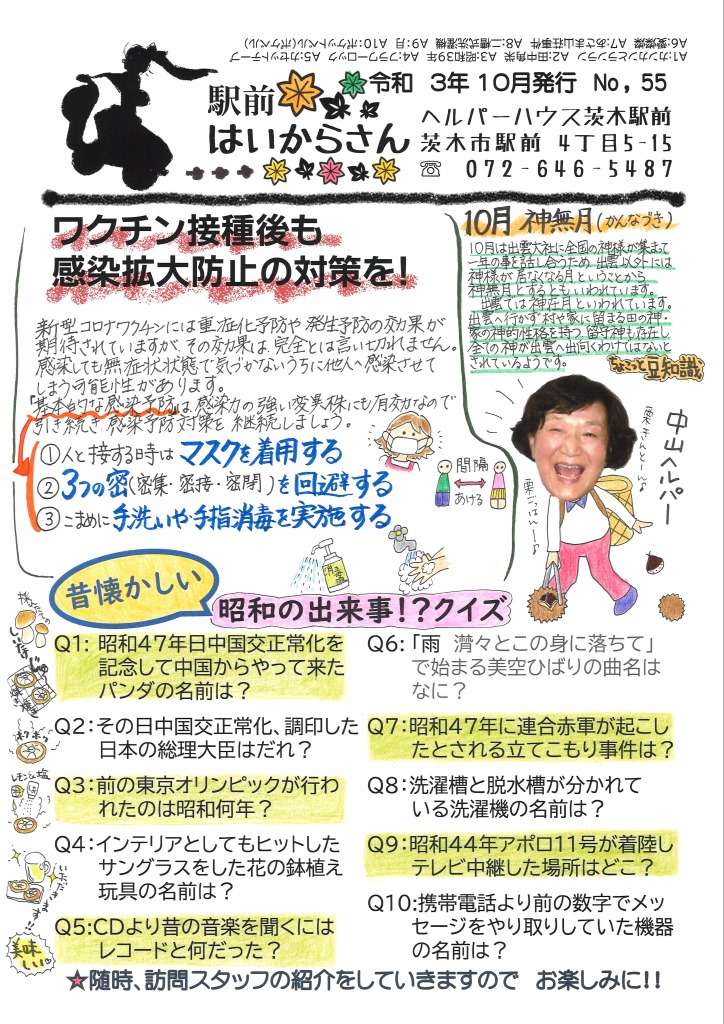 A1:カンカンとランラン A2:田中角栄 A3:昭和39年 A4:フラワーロック A5:カセットテープ
A6:愛燦燦 A7:あさま山荘事件 A8:二槽式洗濯機 A9:月 A10:ポケットベル(ポケベル)
令和 3年10月発行 No,55
駅前
はいからさん
ヘルパーハウス茨木駅前
茨木市駅前 4丁目5-15
☏ 072-646-5487
ワクチン接種後も
感染拡大防止の対策を!
新型コロナワクチンには重症化予防や発生予防の効果が
期待されていますが、その効果は、完全とは言い切れません。
感染しても無症状状態で気づかないうちに他人へ感染させて
しまう可能性があります。
「基本的な感染予防」は、感染力の強い変異株にも有効なので
引き続き感染予防対策を継続しましょう。
①人と接する時はマスクを着用する
②3つの密(密集・密接・密閉)を回避する
③こまめに手洗いや手指消毒を実施する
間隔
あける
10月 神無月(かんなづき)
10月は出雲大社に全国の神様が集まって
一年の事を話し合うため、出雲以外には
神様が居なくなる月ということから
神無月とするともいわれています。
出雲では神在月といわれています。
出雲へ行かず村や家に留まる田の神・
家の神的性格を持つ、留守神も存在し
全ての神が出雲へ出向くわけではないと
されているようです。
ちょこっと豆知識
中山ヘルパー
栗きんとん〜♪
栗ごはん〜♪
昔懐かしい
昭和の出来事!?クイズ
Q1:昭和47年日中国交正常化を
記念して中国からやって来た
パンダの名前は?
Q2:その日中国交正常化、調印した
日本の総理大臣はだれ?
Q3:前の東京オリンピックが行わ
れたのは昭和何年?
Q4:インテリアとしてもヒットした
サングラスをした花の鉢植え
玩具の名前は?
Q5:CDより昔の音楽を聞くには
レコードと何だった?
Q6:「雨 潸々とこの身に落ちて」
で始まる美空ひばりの曲名は
なに?
Q7:昭和47年に連合赤軍が起こし
たとされる立てこもり事件は?
Q8:洗濯槽と脱水槽が分かれて
いる洗濯機の名前は?
Q9:昭和44年アポロ11号が着陸し
テレビ中継した場所はどこ?
Q10:携帯電話より前の数字でメッ
セージをやり取りしていた機器
の名前は?
しいたけ
レモン&塩
いただきます!!
美味しい。
★随時、訪問スタッフの紹介をしていきますので お楽しみに!!